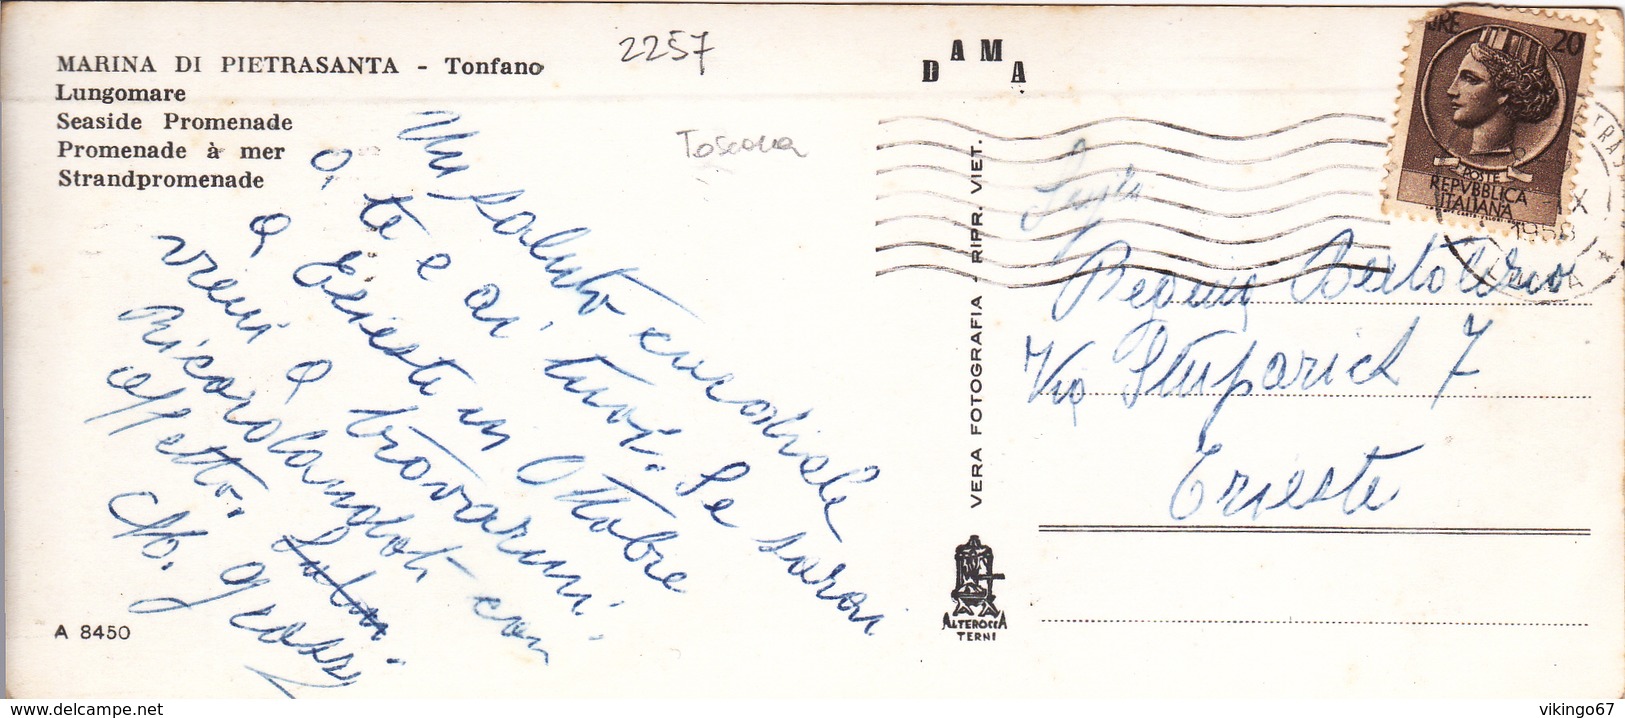 MARINA DI PIETRASANTA - Tonfano
Lungomare
Seaside Promenade
Promenade à mer
Strandpromenade
2257
Toscana
Un saluto cordiale
a te e ai tuoi. Se sarai
a Trieste in Ottobre
vieni a trovarmi.
Ricordandoti con
affetto.
M. Grassi
A 8450
DAMA
VERA FOTOGRAFIA - RIPR. VIET.
ALTEROCCA
TERNI
LIRE 20
POSTE
REPVBBLICA
ITALIANA
1958
Bertolino
Via Stuparich 7
Trieste
www.delcampe.net
vikingo67